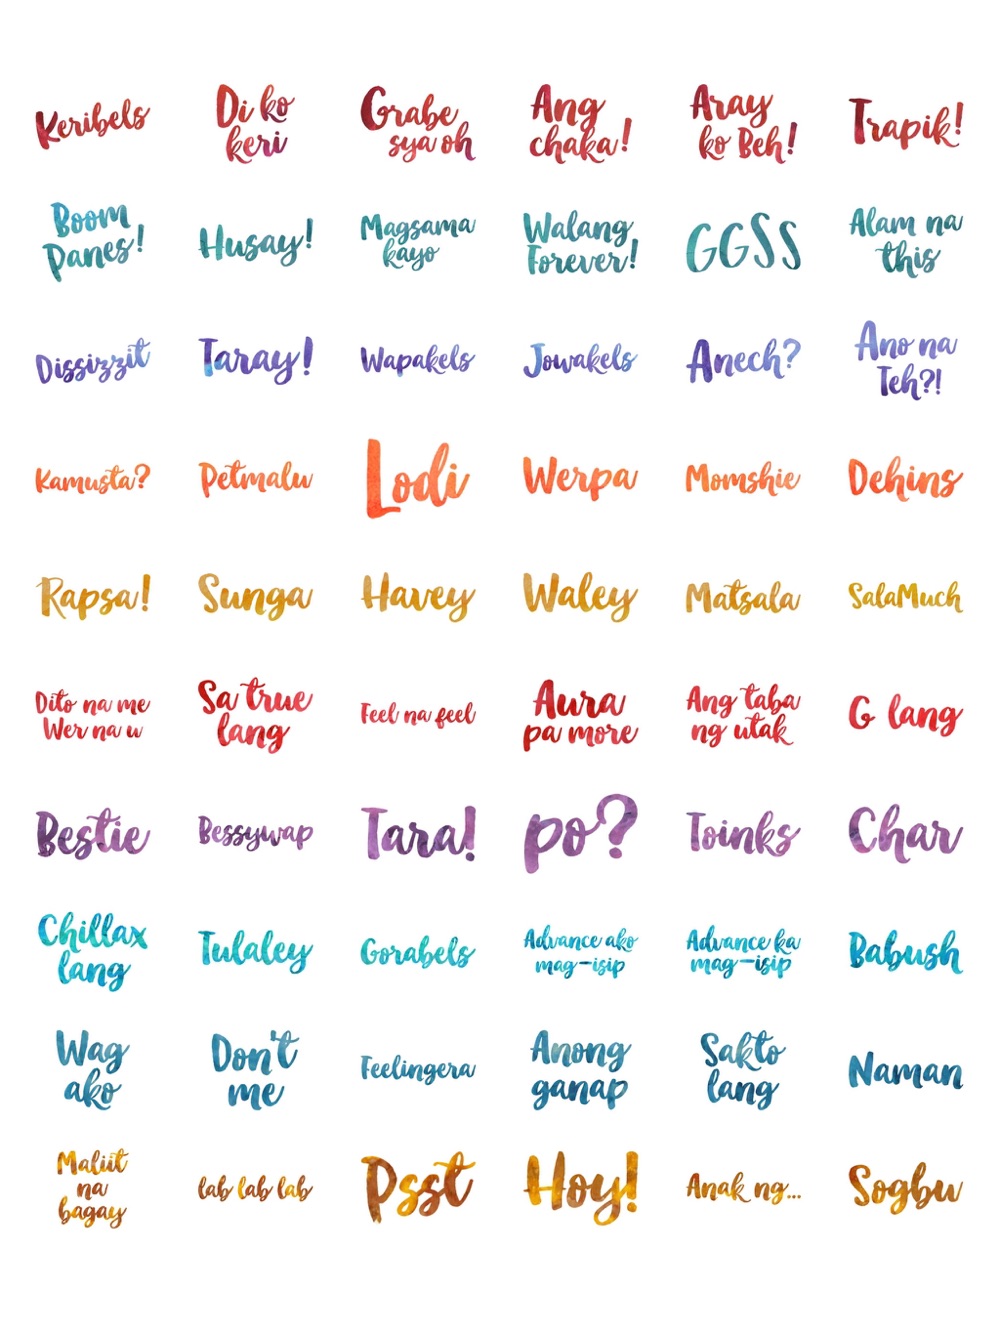 Keribels
Di ko
keri
Grabe
sya oh
Ang
chaka!
Aray
ko Beh!
Trapik!
Boom
Panes!
Husay!
Magsama
kayo
Walang
Forever!
GGSS
Alam na
this
Dissizzit
Taray!
Wapakels
Jowakels
Anech?
Ano na
Teh?!
Kamusta?
Petmalu
Lodi
Werpa
Momshie
Dehins
Rapsa!
Sunga
Havey
Waley
Matsala
SalaMuch
Dito na me
Wer na u
Sa true
lang
Feel na feel
Aura
pa more
Ang taba
ng utak
G lang
Bestie
Bessywap
Tara!
po?
Toinks
Char
Chillax
lang
Tulaley
Gorabels
Advance ako
mag-isip
Advance ka
mag-isip
Babush
Wag
ako
Don't
me
Feelingera
Anong
ganap
Sakto
lang
Naman
Maliit
na
bagay
lab lab lab
Psst
Hoy!
Anak ng...
Sogbu